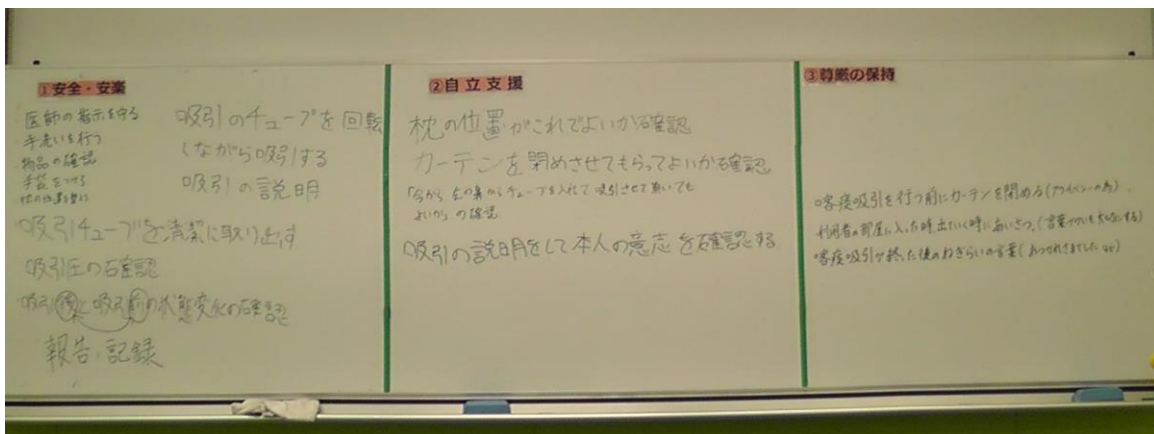 ①安全・安楽
医師の指示を守る
手洗いを行う
物品の確認
手袋をつける
枕の位置を整え
吸引のチューブを回転
しながら吸引する
吸引の説明
吸引チューブを清潔に取り出す
吸引圧の確認
吸引後と吸引前の状態変化の確認
報告・記録
②自立支援
枕の位置がこれでよいか確認
カーテンを閉めさせてもらってよいか確認
「今から左の鼻からチューブを入れて吸引させて頂いても
よいか」の確認
吸引の説明をして本人の意志を確認する
③尊厳の保持
○喀痰吸引を行う前にカーテンを閉める(プライバシーの為)。
利用者の部屋に入った時出ていく時にあいさつ。(言葉づかいも大切にする)
○喀痰吸引が終った後のねぎらいの言葉(おつかれさまでした など)